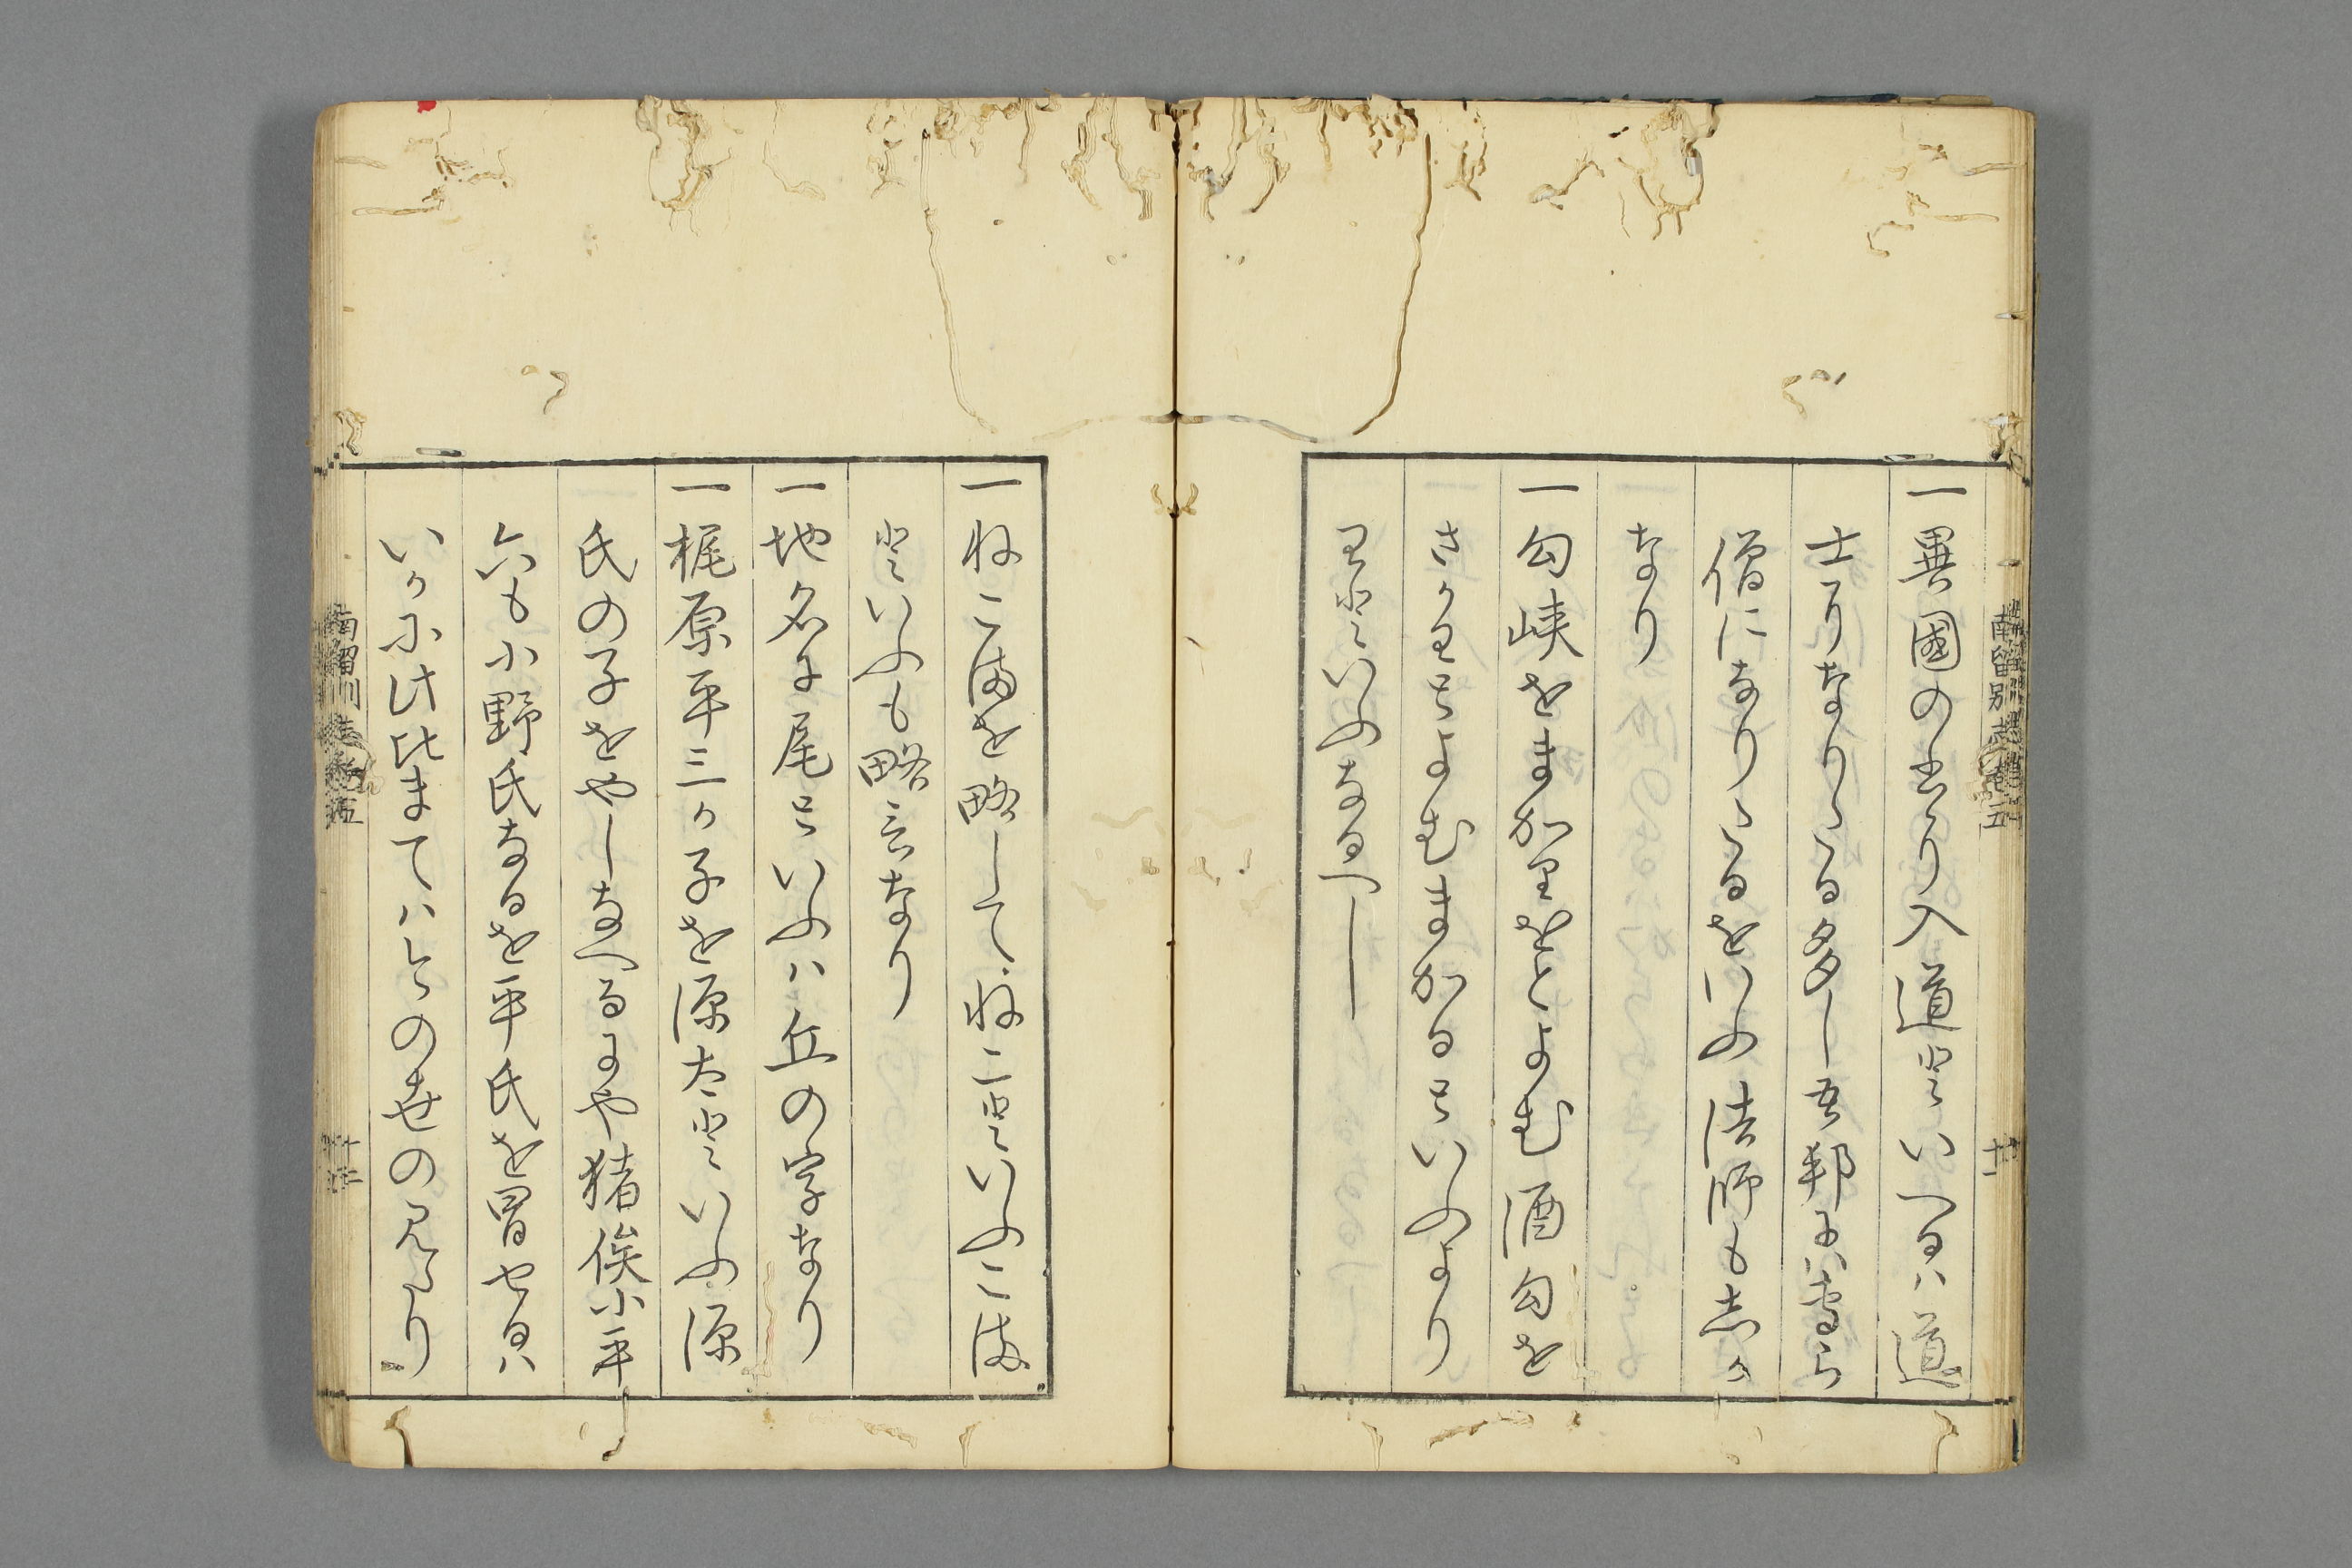 南留別志巻五
十一
一異國の書に入道といへるハ道
士になりたる多し吾邦にハ専ら
僧になりたるをいふ法師も志か
なり
一勾峡をまかりをとよむ酒勾を
さかわとよむまかるといふより
わといふなるへし
一ねこまを略してねこといふこま
といふも略言なり
一地名に尾といふハ丘の字なり
一梶原平三か子を源太といふ源
氏の子をやしなへるにや猪俣小平
六も小野氏なるを平氏を冒せるハ
いかに此比まてハ